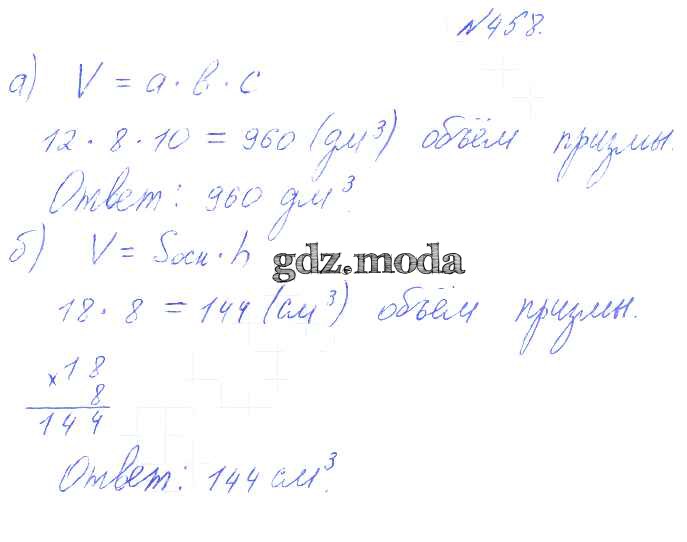 №458.
а) V = a · b · c
12 · 8 · 10 = 960 (дм³) объём призмы.
Ответ: 960 дм³.
б) V = Sосн · h
gdz.moda
18 · 8 = 144 (см³) объём призмы.
×18
8
144
Ответ: 144 см³.